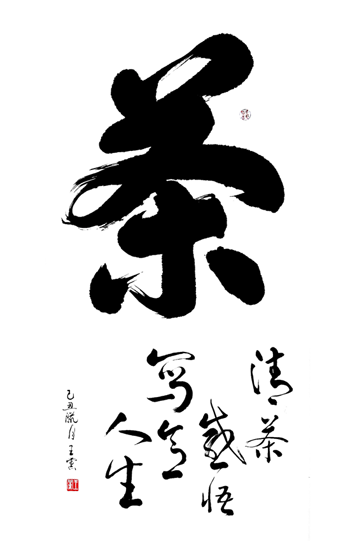 茶
清茶
感悟
写意
人生
己丑 月王